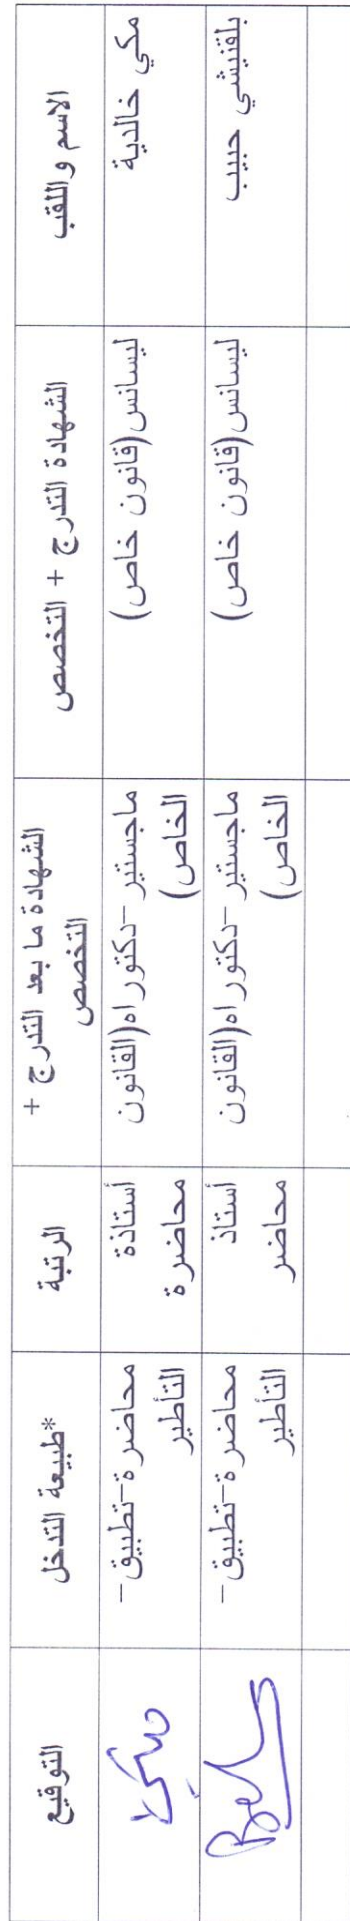 الاسم واللقب
الشهادة التدرج + التخصص
الشهادة ما بعد التدرج +
التخصص
الرتبة
*طبيعة التدخل
التوقيع
مكي خالدية
ليسانس(قانون خاص)
ماجستير -دكتوراه(القانون
الخاص)
أستاذة
محاضرة
محاضرة-تطبيق-
التأطير
مكي
بلقنيشي حبيب
ليسانس(قانون خاص)
ماجستير -دكتوراه(القانون
الخاص)
أستاذ
محاضر
محاضرة-تطبيق-
التأطير